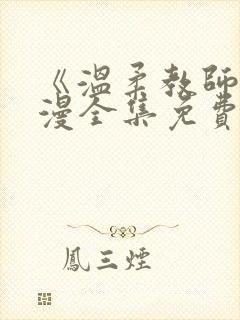 《溫柔教師
漫全集免費
鳳三煙